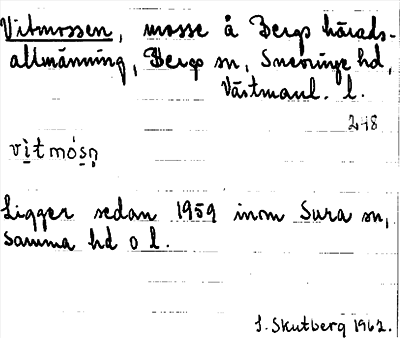 Vitmossen, mosse å Bergs härads-
allmänning, Bergs sn, Snevringe hd,
Västmanl. l.
248
vi̱tmó̱sṇ
Ligger sedan 1959 inom Sura sn,
samma hd o l.
S. Skutberg 1962.